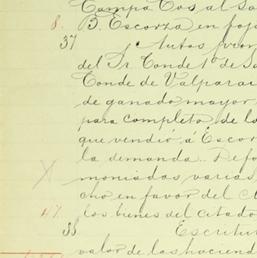 Campa Cos al Sa
8. B. Escorza en foja
37 Autos veor
del Sr Conde 1º de Sa
Conde de Valparai
de ganado mayor
para completo de lo
que vendió á Escor
la demanda. Defo
X moniadas varias
cho en favor del C
47. los bienes del citado
38 Escritur
valor de las hacienda